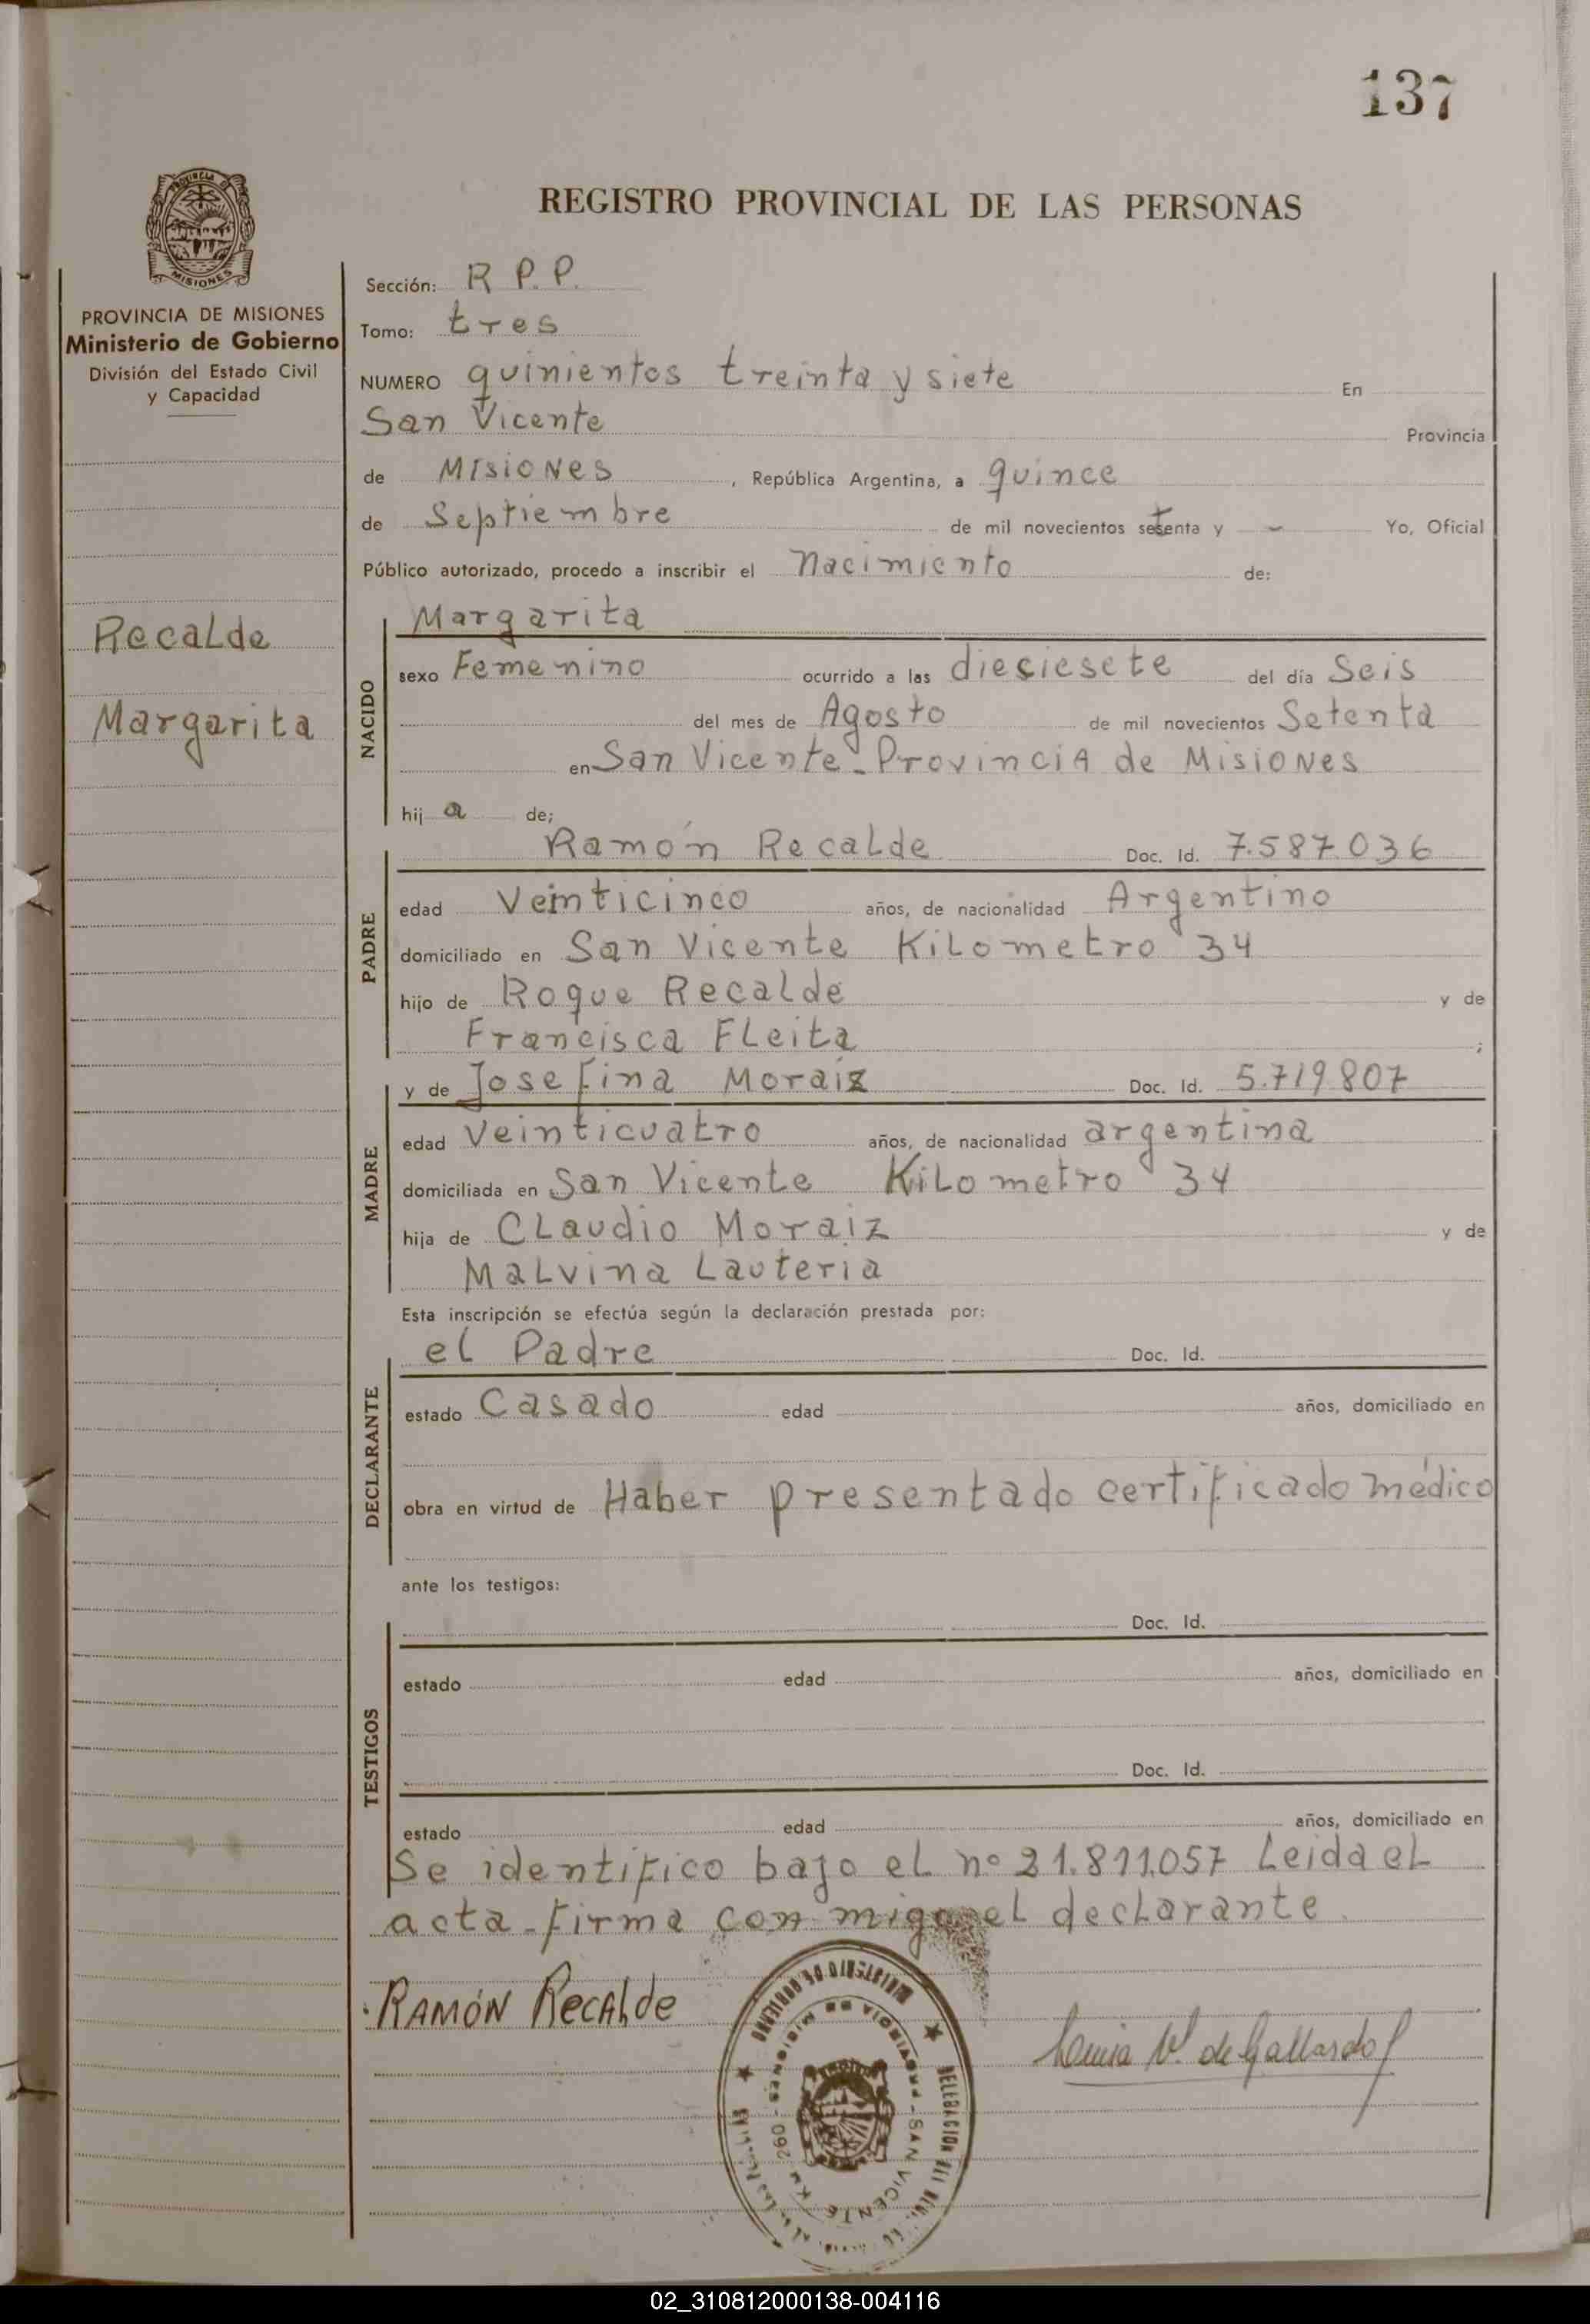 137
PROVINCIA DE MISIONES
Ministerio de Gobierno
División del Estado Civil
y Capacidad
Recalde
Margarita
REGISTRO PROVINCIAL DE LAS PERSONAS
Sección: R P.P.
Tomo: tres
NUMERO quinientos treinta y siete En
San Vicente Provincia
de Misiones, República Argentina, a quince
de Septiembre de mil novecientos setenta y - Yo, Oficial
Público autorizado, procedo a inscribir el Nacimiento de:
Margarita
NACIDO
sexo Femenino ocurrido a las dieciesete del día Seis
del mes de Agosto de mil novecientos Setenta
en San Vicente - Provincia de Misiones
hij a de;
Ramón Recalde Doc. Id. 7.587.036
PADRE
edad Veinticinco años, de nacionalidad Argentino
domiciliado en San Vicente Kilometro 34
hijo de Roque Recalde y de
Francisca Fleita ;
y de Josefina Moraiz Doc. Id. 5.719.807
MADRE
edad Veinticuatro años, de nacionalidad argentina
domiciliada en San Vicente Kilometro 34
hija de Claudio Moraiz y de
Malvina Lauteria
Esta inscripción se efectúa según la declaración prestada por:
el Padre Doc. Id.
DECLARANTE
estado Casado edad años, domiciliado en
obra en virtud de Haber presentado certificado médico
ante los testigos:
Doc. Id.
TESTIGOS
estado edad años, domiciliado en
Doc. Id.
estado edad años, domiciliado en
Se identifico bajo el nº 21.811.057 Leida el
acta - firma con migo el declarante.
RAMÓN RecAlde
V. de Gallardo
MINISTERIO DE GOBIERNO
PROVINCIA DE MISIONES - SAN VICENTE Km 260
DELEGACION DEL
02_310812000138-004116